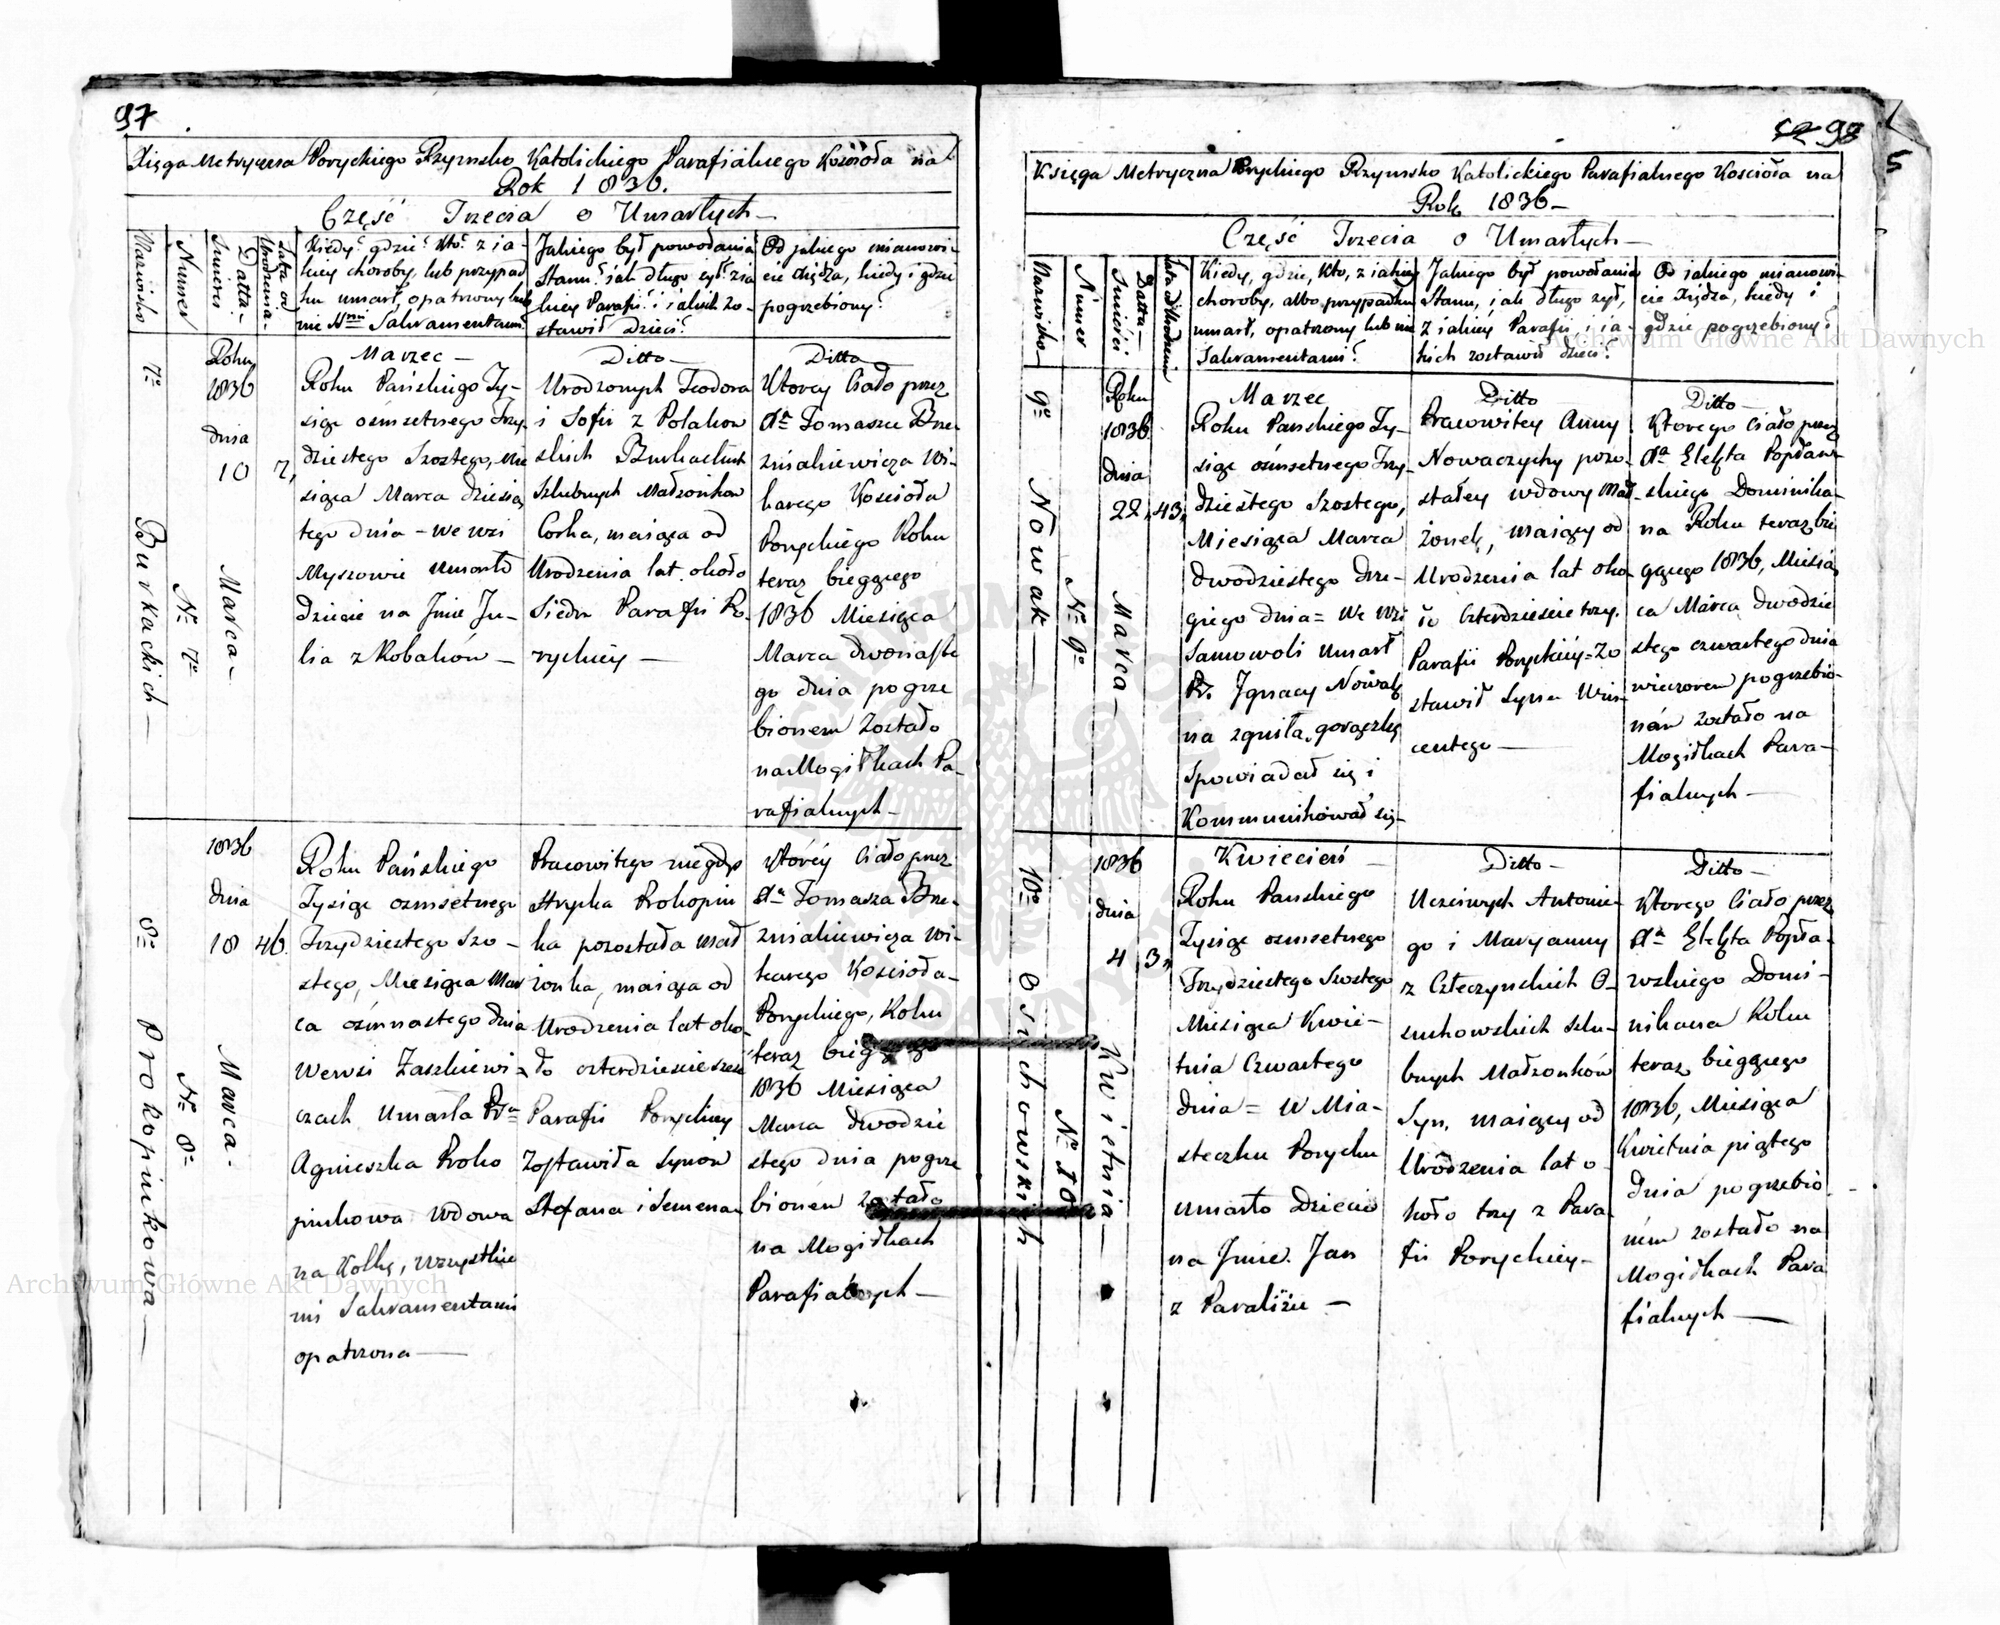 97
Xięga Metryczna Poryckiego Rzymsko Katolickiego Parafialnego Kościoła na
Rok 1836.
Część Trzecia o Umarłych
Nazwisko
Numer
Datta Śmierci
Lata od Urodzenia
Kiedy? gdzie? kto? z ia-
kiey choroby, lub przypad
ku umarł, opatrzony lub
nie Nmi Sakramentami
Jakiego był powołania
Stanu? iak długo żył? z ia
kiey Parafii? i iakich zo-
stawił Dzieci?
Od jakiego mianowi-
cie Xiędza, kiedy i gdzie
pogrzebiony?
7o
Burkackich
No 7o
Roku
1836
dnia
10
Marca
7,
Marzec
Roku Pańskiego Ty-
siąc ośmsetnego Trzy
dziestego Szostego, Mie
siąca Marca dziesią
tego dnia – we wsi
Myszowie umarło
Dziecie na Jmie Ju-
lia z Robaków
Ditto
Urodzonych Teodora
i Sofii z Polakow
skich Burkackich
Szlubnych Małżonkow
Corka, maiąca od
Urodzenia lat około
Siedm Parafii Po
ryckiey
Ditto
Ktorey Ciało przez
Tomasza
Wi-
karego Kościoła
Poryckiego Roku
teraz bieżącego
1836 Miesiąca
Marca dwónaste
go dnia pogrze
bionem zostało
na Mogiłkach Pa-
rafialnych
8o
Prokopiukowa
No 8o
1836
dnia
18
Marca
46.
Roku Pańskiego
Tysiąc ośmsetnego
Trzydziestego Szo-
stego, Miesiąca Mar
ca ośmnastego dnia
We wsi Zaszkiewi-
czach umarła Pra
Agnieszka Proko
piukowa Wdowa
na Kolkę, wszystkie
mi Sakramentami
opatrzona
Pracowitego niegdyś
Hryćka Prokopiu
ka pozostała Mał
żonka, maiąca od
Urodzenia lat oko-
ło czterdzieście sześć
Parafii Poryckiey
Zostawiła Synów
Stefana i Semena
Ktorey Ciało przez
Tomasza
Wi-
karego Kościoła
Poryckiego, Roku
teraz bieżącego
1836 Miesiąca
Marca Dwodzie
stego dnia pogrze
bionem zostało
na Mogiłkach
Parafialnych
98
5
Księga Metryczna Poryckiego Rzymsko Katolickiego Parafialnego Kościoła na
Rok 1836
Część Trzecia o Umarłych
Nazwisko
Numer
Datta Śmierci
Lata od Urodzenia
Kiedy, gdzie, kto, z iakiey
choroby, albo przypadku
umarł, opatrzony lub nie
Sakramentami?
Jakiego był powołania
Stanu, iak długo żył,
z iakiey Parafii, i ia-
kich zostawił dzieci?
Od iakiego mianowi-
cie Xiędza, kiedy i
gdzie pogrzebiony?
9o
Nowak
No 9o
Roku
1836
dnia
22,
Marca
43,
Marzec
Roku Pańskiego Ty-
siąc ośmsetnego Trzy-
dziestego Szostego,
Miesiąca Marca
dwodziestego Dru-
giego dnia = We Wsi
Samowoli umarł
Pr. Jgnacy Nowak
na zgniłą gorączkę
Spowiadał się i
Kommunikował się
Ditto
Pracowitey Anny
Nowaczychy pozo-
stałey wdowy Mał-
żonek, maiący od
Urodzenia lat oko
ło Czterdzieście trzy.
Parafii Poryckiey = Zo
stawił Syna Win
centego
Ditto
Ktorego Ciało przez
Popław-
skiego Dominika-
na Roku teraz bie
gącego 1836, Miesią
ca Marca Dwodzie
stego czwartego dnia
wieczorem pogrzebio-
ném zostało na
Mogiłkach Para-
fialnych
10o
Osuchowskich
No 10
1836
dnia
4
Kwietnia
3,
Kwiecień
Roku Pańskiego
Tysiąc ośmsetnego
Trzydziestego Szostego
Miesiąca Kwie-
tnia Czwartego
dnia = W Mia-
steczku Porycku
umarło Dziecie
na Jmie Jan
z Paraliżu
Ditto
Uczciwych Antonie-
go i Maryanny
z O-
suchowskich Szlu-
bnych Małżonków
Syn, maiący od
Urodzenia lat o-
koło trzy z Para
fii Poryckiey
Ditto
Ktorego Ciało przez
Popła-
wskiego Domi-
nikana Roku
teraz bieżącego
1836, Miesiąca
Kwietnia piątego
Dnia pogrzebio
ném zostało na
Mogiłkach Para
fialnych
Archiwum Główne Akt Dawnych
Archiwum Główne Akt Dawnych